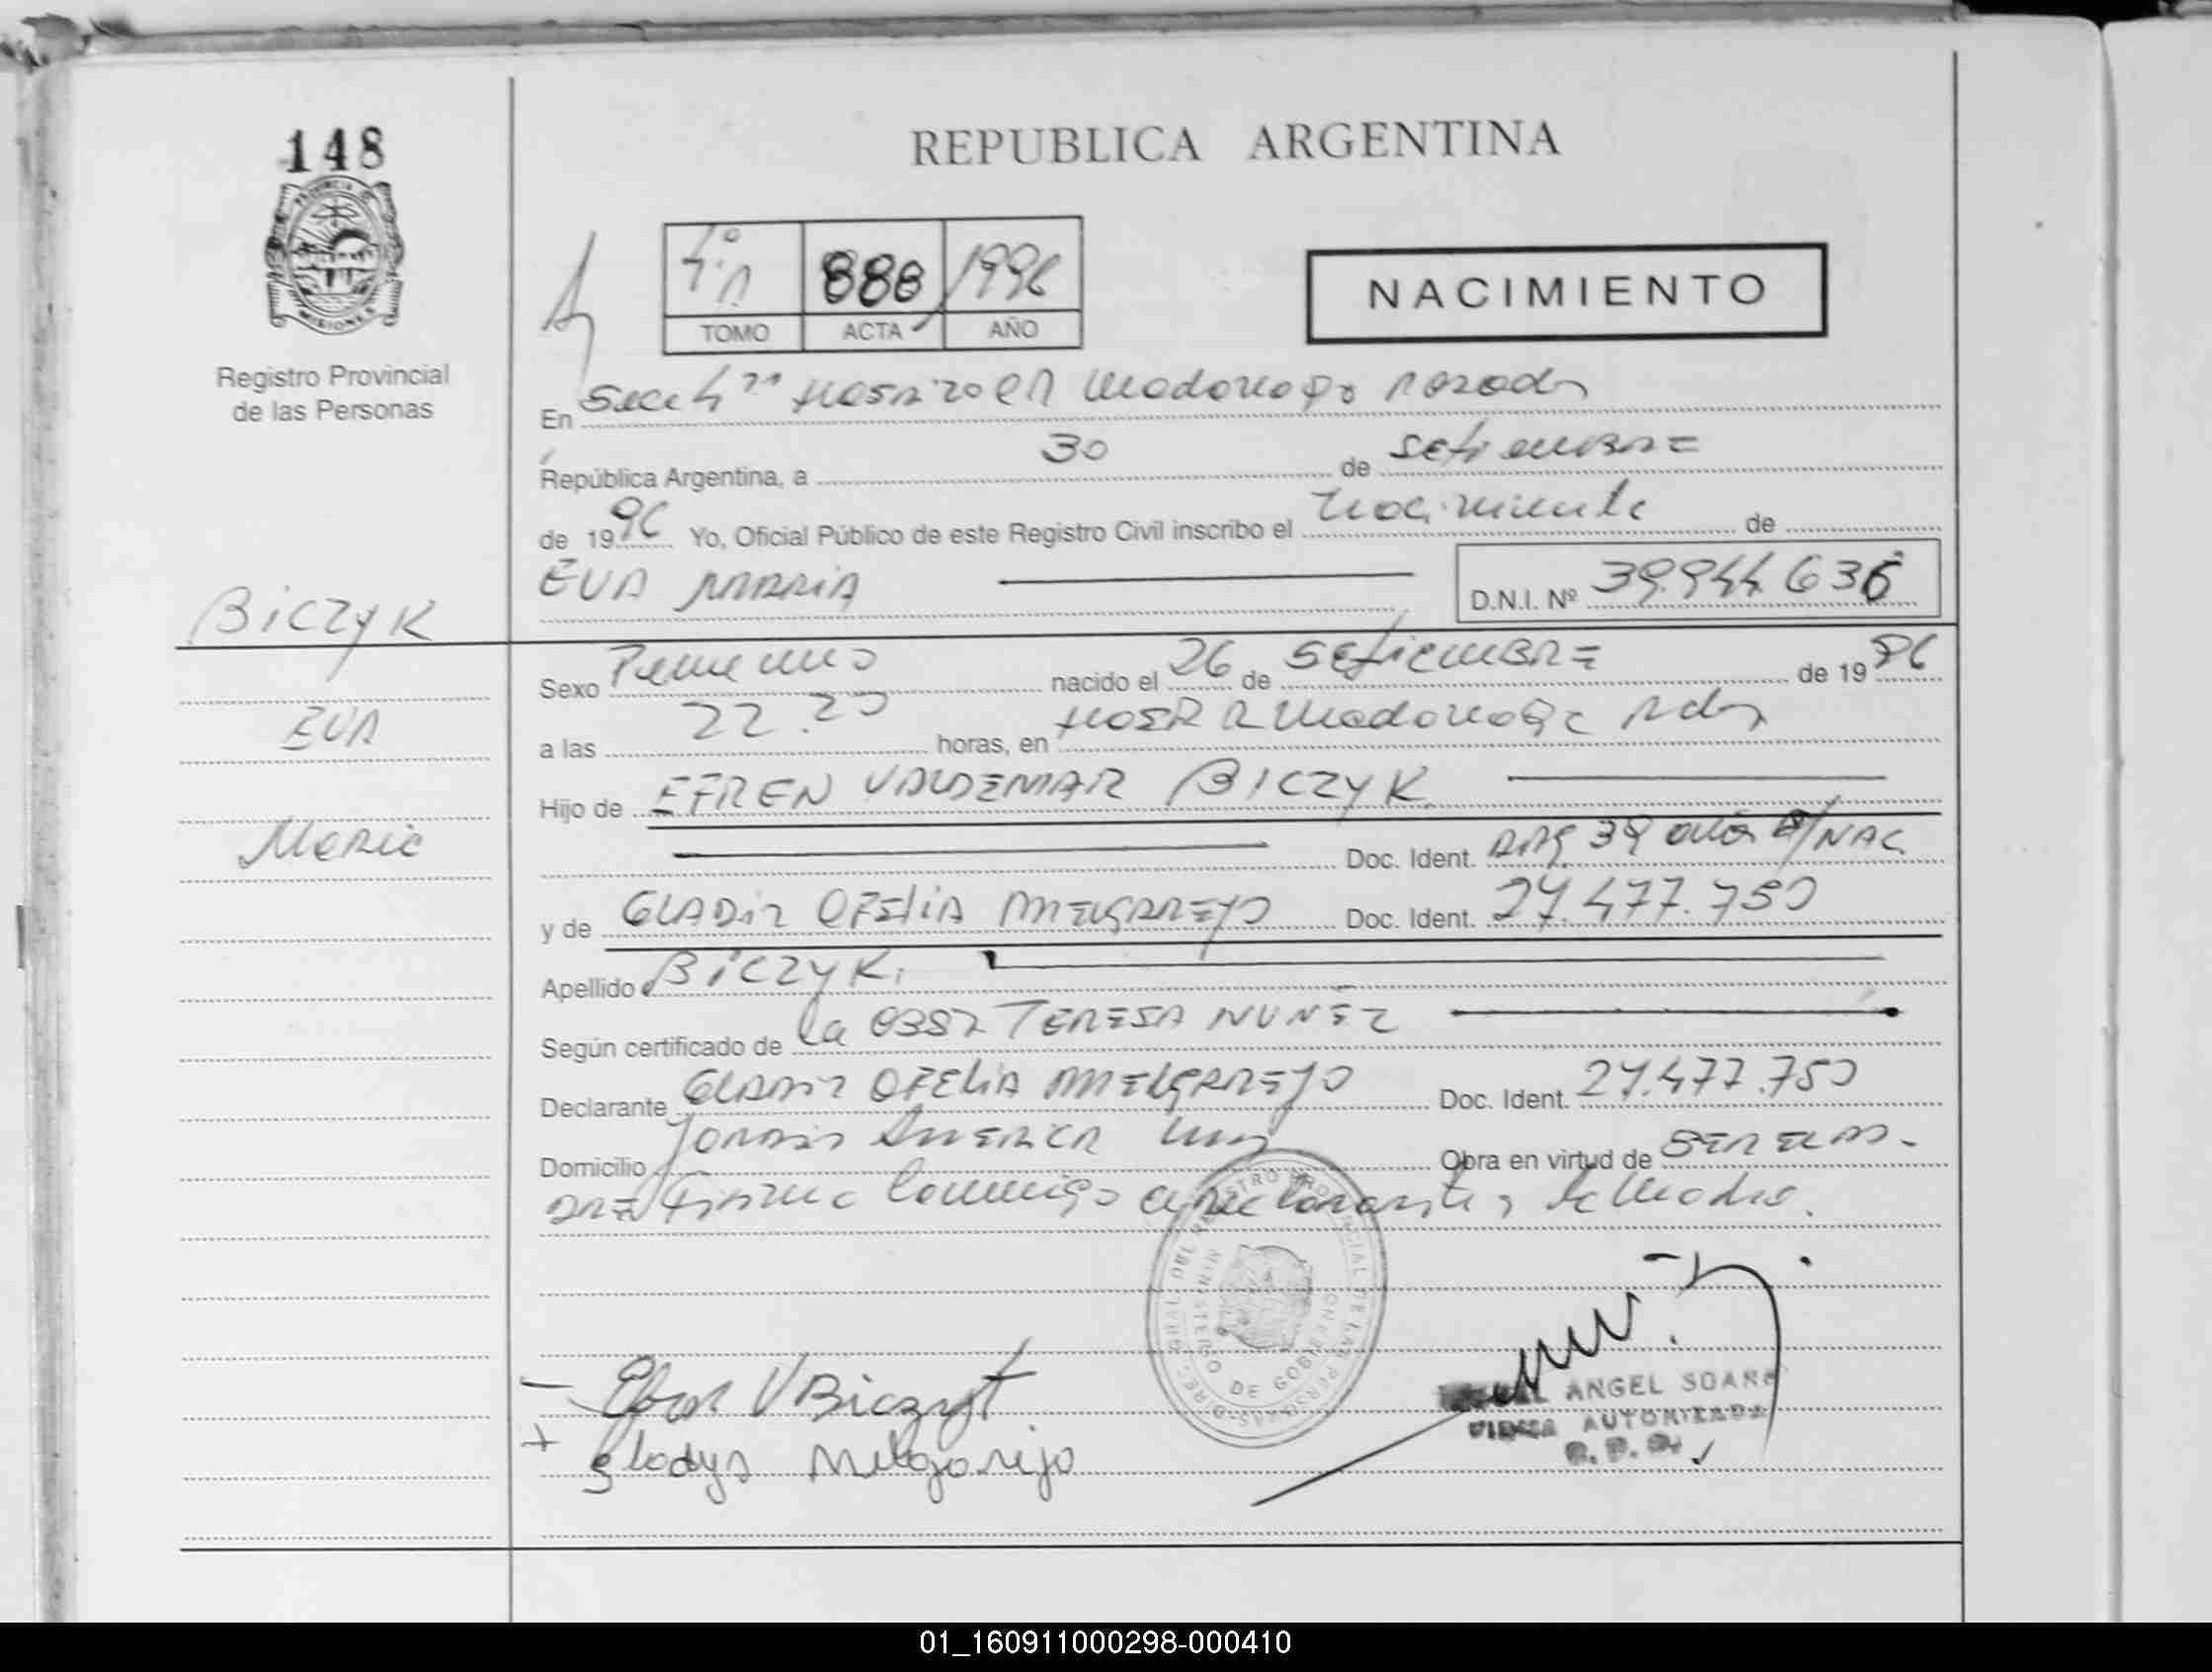 148
PROVINCIA DE
MISIONES
Registro Provincial
de las Personas
REPUBLICA ARGENTINA
888 1996
TOMO ACTA AÑO
NACIMIENTO
En Secc 4ta
República Argentina, a 30 de setiembre
de 1996 Yo, Oficial Público de este Registro Civil inscribo el nacimiento de
EUA MARIA D.N.I. Nº 39.944.636
BiCZYK
EVA
Maria
Sexo Femenino nacido el 26 de setiembre de 1996
a las 22.20 horas, en
Hijo de EFREN VALDEMAR BICZYK
Doc. Ident. ARG. 39 años /NAC.
y de GLADiz OFEliA MELGAREJO Doc. Ident. 27.477.750
Apellido BiCZYK.
Según certificado de la OBST TERESA NUÑEZ
Declarante GLADiz OFEliA MELGAREJO Doc. Ident. 27.477.750
Domicilio America Obra en virtud de
firma conmigo declarante y la Madre.
DIREC. GRAL DEL REGISTRO PROVINCIAL DE LAS PERSONAS
MINISTERIO DE GOBIERNO
V Biczyk
Gladys Melgarejo
ANGEL SOARE
FIRMA AUTORIZADA
R. P. P.
01_160911000298-000410